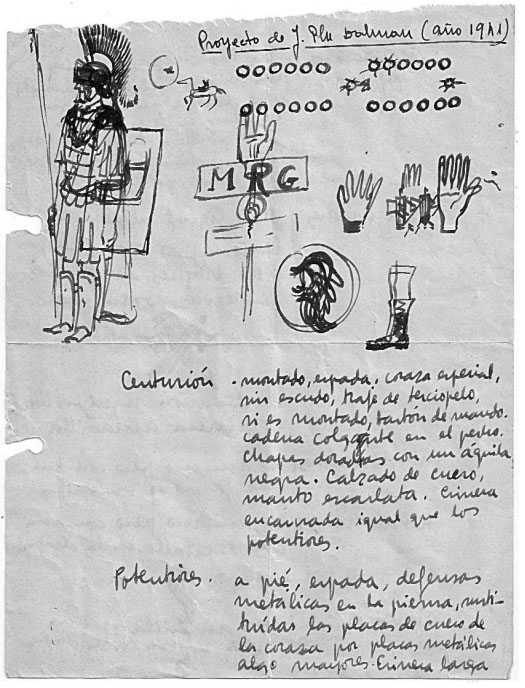 Proyecto de J. Plu Dalmau (año 1941)
M R G
Centurión . montado, espada, coraza especial,
sin escudo, traje de terciopelo,
si es montado, bastón de mando.
cadena colgante en el pecho.
Chapas doradas con un águila
negra. Calzado de cuero,
manto escarlata. Crinera
encarnada igual que los
potentiores.
Potentiores. a pié, espada, defensas
metálicas en la pierna, susti-
tuidas las placas de cuero de
la coraza por placas metálicas
algo mayores. Crinera larga